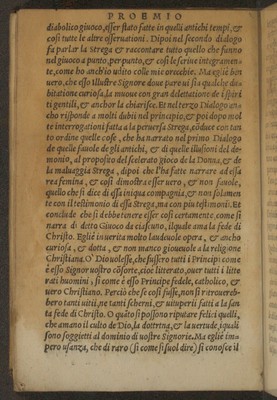 PROEMIO
diabolico giuoco, esser stato fatte in quelli antichi tempi, &
così tutte le altre osseruationi. Dipoi nel secondo dialogo
fa parlar la Strega & raccontare tutto quello che funno
nel giuoco a punto, per punto, & così le scriue integramen-
te, come ho anch'io udito colle mie orecchie. Ma eglié ben
uero, che esso Illustre Signore doue pare ui sia qualche du-
bitatione curiosa, la muoue con gran delettatione de i spiri
ti gentili, & anchor la chiarisce. Et nel terzo Dialogo an-
cho risponde a molti dubii nel principio, & poi dopo mol
te interrogationi fatta a la peruersa Strega, educe con tan
to ordine quelle cose, che ha narrato nel primo Dialogo
de quelle fauole de gli antichi, & di quelle illusioni del de-
monio, al proposito del scelerato gioco de la Donna, & de
la maluaggia Strega, dipoi che l'ha fatte narrare ad essa
rea femina, & così dimostra esser uero, & non fauole,
quello che si dice di essa iniqua compagnia, & non solamen
te con il testimonio di essa Strega, ma con piu testimoni. Et
conclude che si debbe tenere esser così certamente, come si
narra di detto Giuoco da ciascuno, il quale ama la fede di
Christo. Eglié in ueria molto laudeuole opera, & ancho
curiosa, & dotta, & non manco gioueuole a la religione
Christiana. O' Dio uolesse, che fussero tutti i Principi come
è esso Signor uostro cōsorte, cioè litterato, ouer tutti i litte
rati huomini, si come è esso Principe fedele, catholico, &
uero Christiano. Perciò che se così fusse, non si ritrouereb-
bero tanti uitii, ne tanti scherni, & uituperii fatti a la san
ta fede di Christo. O quāto si possono riputare felici quelli,
che amano il culto de Dio, la dottrina, & la uertude, i quali
sono soggietti al dominio di uostre Signorie. Ma eglié im-
pero usanza, che di raro (si come si suol dire) si conosce il